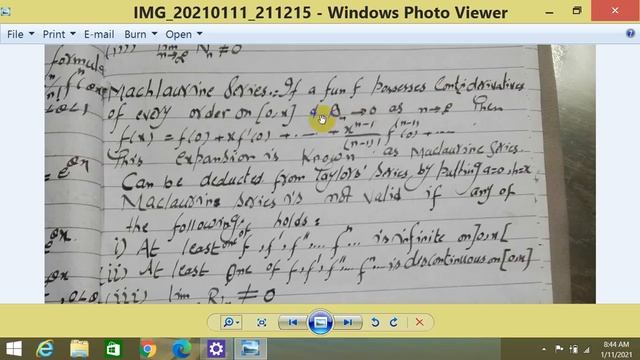 IMG_20210111_211215 - Windows Photo Viewer
File Print E-mail Burn Open
(iii) lim Nn ≠ 0
n→∞
formula
Machlaurine Series:. If a fun f Possesses Conti: derivatives
of every order on [0,x] & Rn →0 as n→∞ Then
f(x) = f(0) + xf'(0) + ..... + x^(n-1)/(n-1)! f^(n-1)(0) + ....
This expansion is Known as Maclaurine Series.
Can be deducted from Taylors' Series by putting a=0
Maclaurine Series is not valid if any of
the following holds:
i) At least one of f, f', f"... f^n ... is infinite on ]0,x[
(ii) At least One of f, f', f"... f^n... is discontinuous on [0,x]
(iii) lim Rn ≠ 0
8:44 AM
1/11/2021